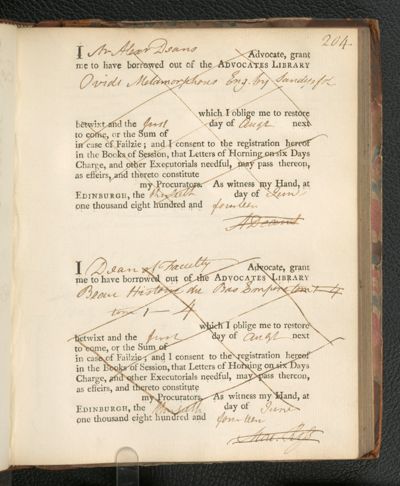 204.
I Mr Alexr Deans Advocate, grant
me to have borrowed out of the ADVOCATES LIBRARY
Ovids Metamorphoses Eng. by Sandys
which I oblige me to restore
betwixt and the first day of Augt next
to come, or the Sum of
in case of Failzie; and I consent to the registration hereof
in the Books of Session, that Letters of Horning on six Days
Charge, and other Executorials needful, may pass thereon,
as effeirs, and thereto constitute
my Procurators. As witness my Hand, at
EDINBURGH, the day of June
one thousand eight hundred and fourteen
I Dean of Faculty Advocate, grant
me to have borrowed out of the ADVOCATES LIBRARY
Beau Histoire du Bas Empire tom 1-4
tom 1 - 4
which I oblige me to restore
betwixt and the first day of Augt next
to come, or the Sum of
in case of Failzie; and I consent to the registration hereof
in the Books of Session, that Letters of Horning on six Days
Charge, and other Executorials needful, may pass thereon,
as effeirs, and thereto constitute
my Procurators. As witness my Hand, at
EDINBURGH, the day of June
one thousand eight hundred and fourteen